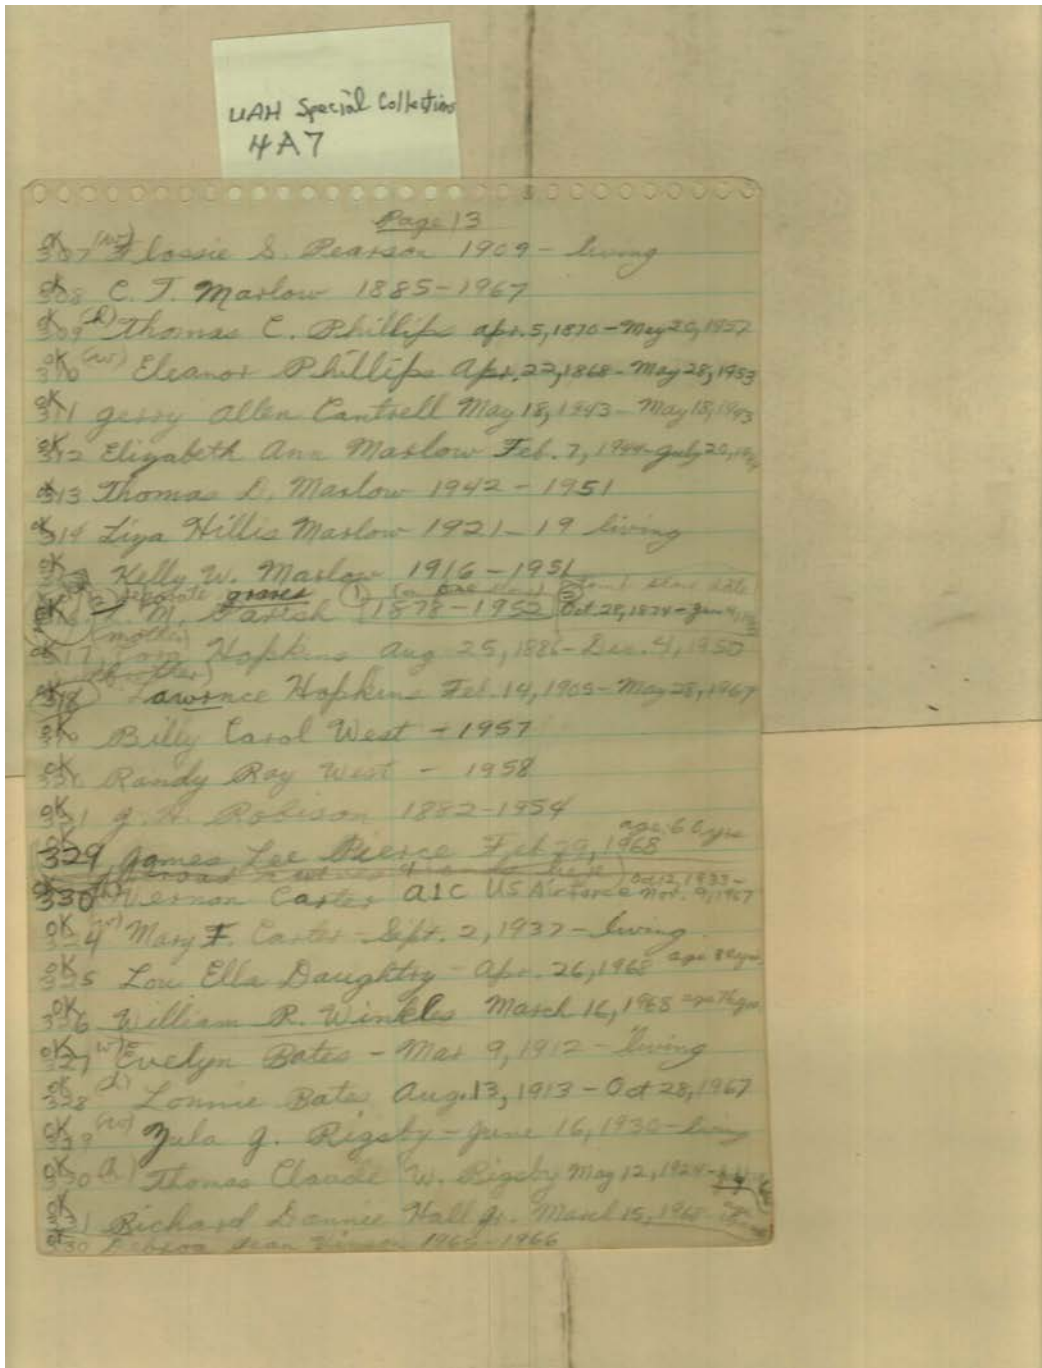 UAH Special Collections
4A7
Page 13
OK 307 (w) Flossie S. Pearson 1909 - living
OK 308 C. T. Marlow 1885-1967
OK 309 (h) Thomas C. Phillips Apr. 5, 1870 - May 20, 1957
OK 310 (w) Eleanor Phillips Apr. 22, 1868 - May 28, 1953
OK 311 Gerry Allen Cantrell May 18, 1943 - May 18, 1943
OK 312 Elizabeth Ann Marlow Feb. 7, 1944 - July 20,
OK 313 Thomas D. Marlow 1942 - 1951
OK 314 Liza Hillis Marlow 1921 - 19 living
OK Kelly W. Marlow 1916 - 1951
separate graves (1) (2)
M. Parish 1878-1952 Oct 28, 1874 -
(mother)
OK 317, Hopkins Aug 25, 1886 - Dec. 4, 1950
(brother)
OK 318 Lawrence Hopkins Feb. 14, 1905 - May 28, 1967
OK Billy Carol West - 1957
OK Randy Ray West - 1958
OK G. H. Robison 1882-1954
age 60 yrs
OK 329, James Lee Pierce Feb 29, 1968
Oct 12, 1933 -
OK 330 (h) Vernon Carter A1C US Air Force Nov. 9, 1967
OK 324 (w) Mary F. Carter - Sept. 2, 1937 - living
OK 325 Lou Ella Daughtry - Apr. 26, 1968 age
OK 326 William R. Winkles March 16, 1968 age
OK 327 (w) Evelyn Bates - Mar 9, 1912 - living
OK 328 (h) Lonnie Bates Aug. 13, 1913 - Oct 28, 1967
OK 329 (w) Zula G. Rigsby - June 16, 1930 - living
OK 330 (h) Thomas Claude W. Rigsby May 12, 1924 -
OK Richard Donnie Hall Jr. March 15, 1968
OK 330 Jean 1965-1966